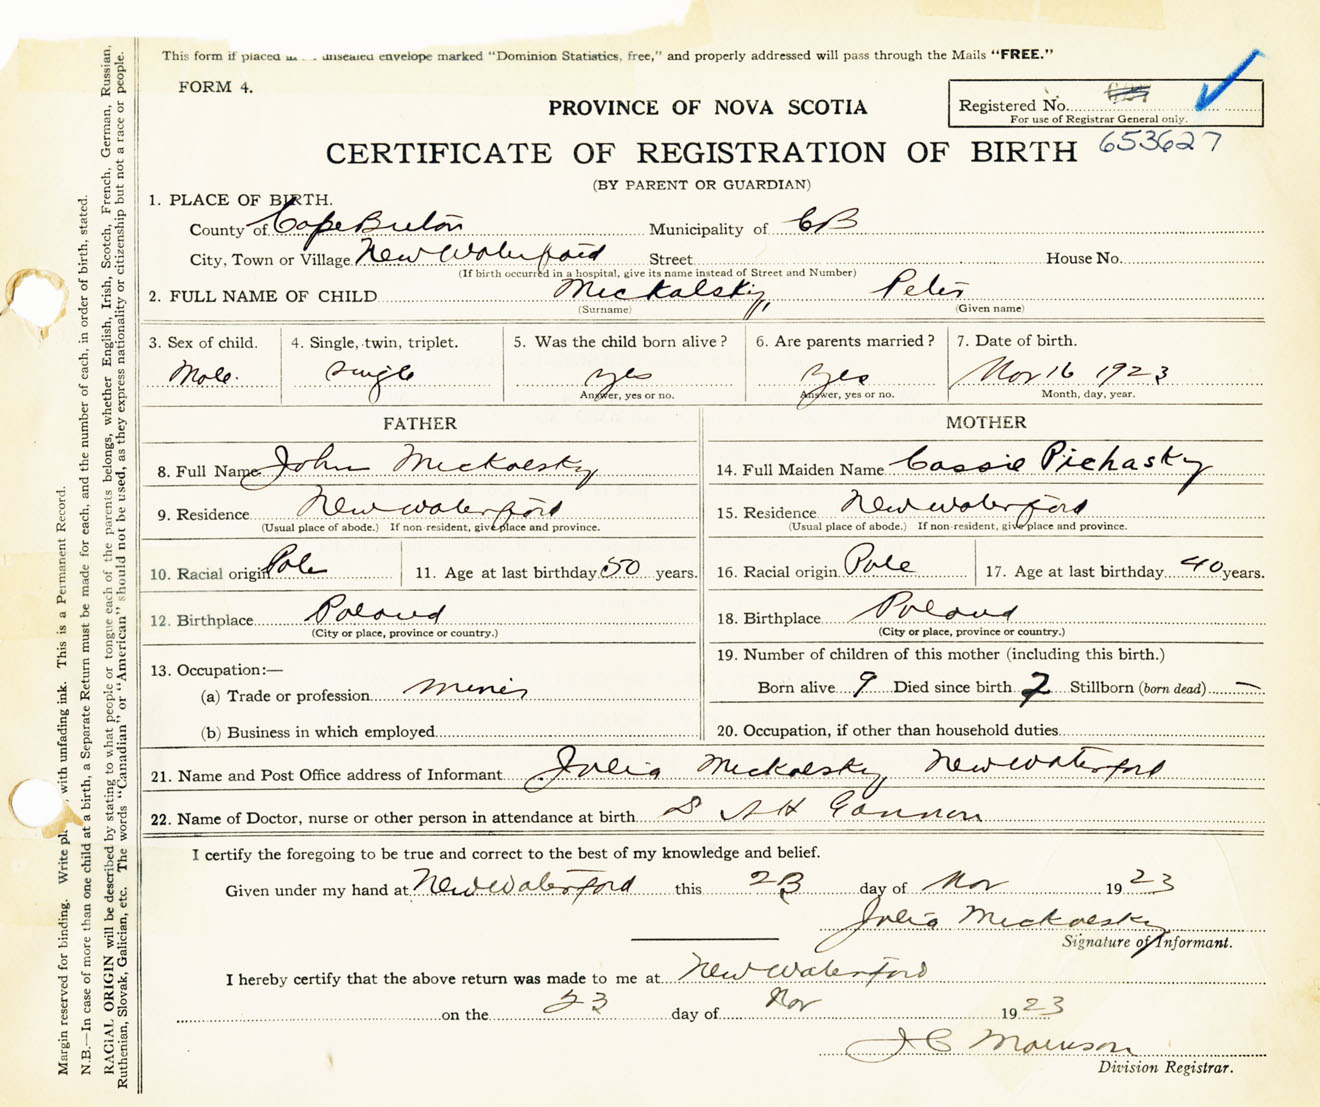 This form if placed in an unsealed envelope marked "Dominion Statistics, free," and properly addressed will pass through the Mails "FREE."
FORM 4.
PROVINCE OF NOVA SCOTIA
Registered No.
For use of Registrar General only.
CERTIFICATE OF REGISTRATION OF BIRTH 653627
(BY PARENT OR GUARDIAN)
1. PLACE OF BIRTH.
County of Cape Breton Municipality of CB
City, Town or Village New Waterford Street House No.
(If birth occurred in a hospital, give its name instead of Street and Number)
2. FULL NAME OF CHILD Mickalsky, Peter
(Surname) (Given name)
3. Sex of child. 4. Single, twin, triplet. 5. Was the child born alive? 6. Are parents married? 7. Date of birth.
Male. Single yes yes Nov 16 1923
Answer, yes or no. Answer, yes or no. Month, day, year.
FATHER MOTHER
8. Full Name John Mickalsky 14. Full Maiden Name Cassie Pichasky
9. Residence New Waterford 15. Residence New Waterford
(Usual place of abode.) If non-resident, give place and province. (Usual place of abode.) If non-resident, give place and province.
10. Racial origin Pole 11. Age at last birthday 50 years. 16. Racial origin Pole 17. Age at last birthday 40 years.
12. Birthplace Poland 18. Birthplace Poland
(City or place, province or country.) (City or place, province or country.)
13. Occupation:— 19. Number of children of this mother (including this birth.)
(a) Trade or profession miner Born alive 9 Died since birth 2 Stillborn (born dead) —
(b) Business in which employed 20. Occupation, if other than household duties
21. Name and Post Office address of Informant Julia Mickalsky New Waterford
22. Name of Doctor, nurse or other person in attendance at birth
I certify the foregoing to be true and correct to the best of my knowledge and belief.
Given under my hand at New Waterford this 23 day of Nov 1923
Julia Mickalsky
Signature of Informant.
I hereby certify that the above return was made to me at New Waterford
on the 23 day of Nov 1923
J C Morrison
Division Registrar.
Margin reserved for binding. Write with unfading ink. This is a Permanent Record.
N.B.—In case of more than one child at a birth, a Separate Return must be made for each, and the number of each, in order of birth, stated.
RACIAL ORIGIN will be described by stating to what people or tongue each of the parents belongs, whether English, Irish, Scotch, French, German, Russian,
Ruthenian, Slovak, Galician, etc. The words "Canadian" or "American" should not be used, as they express nationality or citizenship but not a race or people.